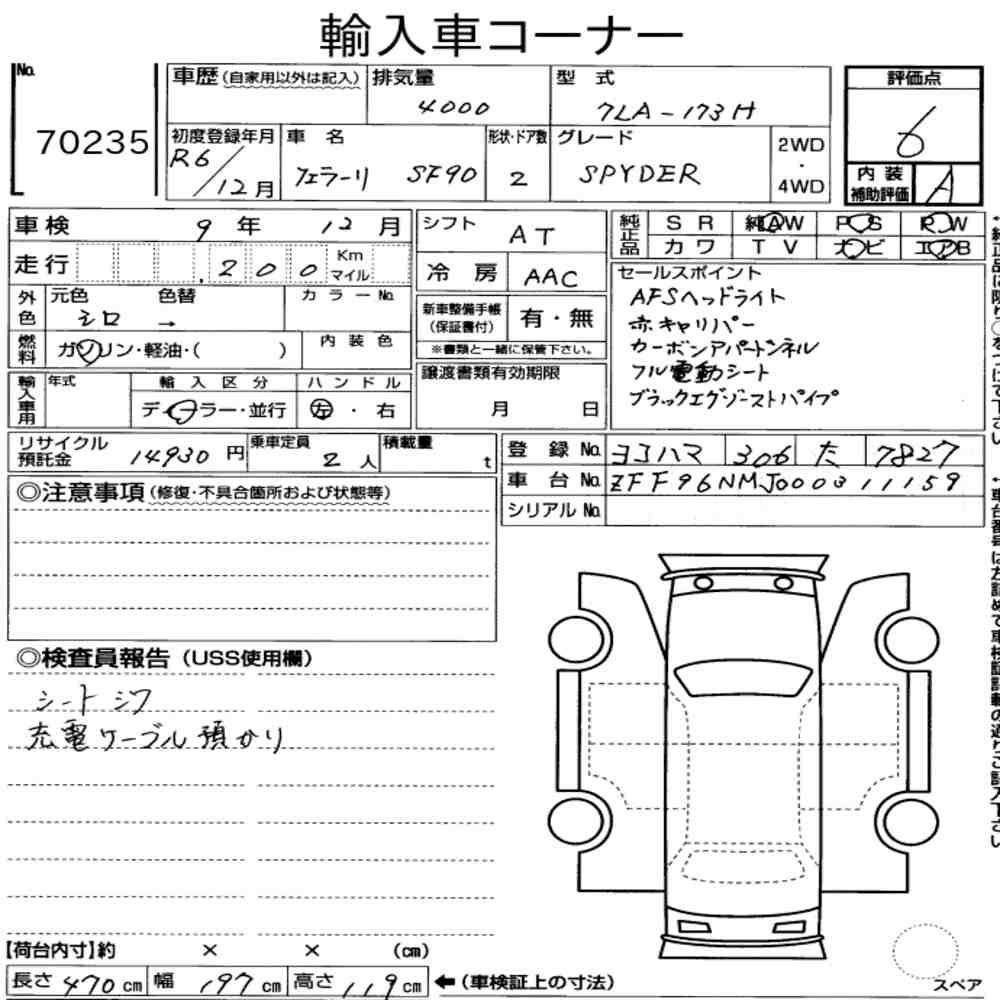 輸入車コーナー
No. 70235
車歴(自家用以外は記入)
排気量 4000
型式 7LA-173H
評価点 6
初度登録年月 R6/12月
車名 フェラーリ SF90
形状・ドア数 2
グレード SPYDER
2WD・4WD
内装補助評価 A
車検 9年 12月
シフト AT
純正品 SR 純AW PS R.W
カワ TV ナビ エアB
走行 , 2 0 0 Km マイル
冷房 AAC
外色 元色 シロ 色替 → カラーNo.
燃料 ガソリン・軽油・( )
内装色
新車整備手帳(保証書付) 有・無
※書類と一緒に保管下さい。
セールスポイント
AFSヘッドライト
赤キャリパー
カーボンアパートンネル
フル電動シート
ブラックエグゾーストパイプ
輸入車用 年式
輸入区分 ディーラー・並行
ハンドル 左・右
譲渡書類有効期限
月 日
リサイクル預託金 14930円
乗車定員 2人
積載量 t
登録No. ヨコハマ 306 た 7827
車台No. ZFF96NMJ000311159
シリアルNo.
◎注意事項(修復・不具合箇所および状態等)
◎検査員報告(USS使用欄)
シートシワ
充電ケーブル預かり
【荷台内寸】約 × × (cm)
長さ 470cm 幅 197cm 高さ 119cm
←(車検証上の寸法)
スペア
←純正品に限り○をつけて下さい
←車台番号は左詰めで車検証記載の通りご記入下さい